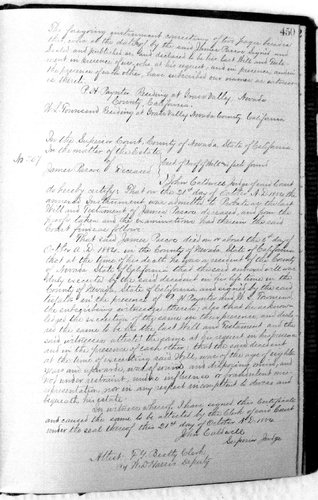 450
The foregoing instrument consisting of two pages besides
this was at the date by the said James Pascoe signed and
sealed and published as and declared to be his last Will and Testa-
ment in presence of us, who at his request, and in presence and in
the presence of each other, have subscribed our names as witnesses
thereto.
P. H. Paynter Residing at Grass Valley, Nevada
County, California.
W. S. Townsend Residing at Grass Valley Nevada County California
In the Superior Court, County of Nevada, State of California
In the matter of the Estate
of
James Pascoe Deceased
Cert. of Proof of Will
No. 267
I John Caldwell judge of said Court
do hereby certify: That on the 21st day of October A.D. 1886 the
annexed instrument was admitted to Probate as the last
Will and Testament of James Pascoe deceased, and from the
proofs taken and the examinations had therein the said
Court finds as follows:
That said James Pascoe died on or about the day
of A.D. 1886, in the County of Nevada State of California
that at the time of his death he was a resident of the County
of Nevada State of California that the said annexed will was
duly executed by the said decedent in his life time in the
County of Nevada State of California and signed by the said
testator in the presence of P. H. Paynter and W. S. Townsend
the subscribing witnesses thereto, also that he acknow-
ledged the execution of the same in their presence, and declar-
ed the same to be his last Will and Testament and the
said witnesses attested the same at his request in his presence
and in the presence of each other, that the said decedent
at the time of executing said Will, was of the age of eighteen
years and upwards, was of sound and disposing mind, and
not under restraint, undue influence or fraudulent mis-
representation nor in any respect incompetent to devise and
bequeath his estate.
In witness whereof I have signed this Certificate
and caused the same to be attested by the Clerk of said Court
under the seal thereof this 21st day of October A.D. 1886
John Caldwell
Superior Judge
Attest F. G. Beatty Clerk
By Deputy